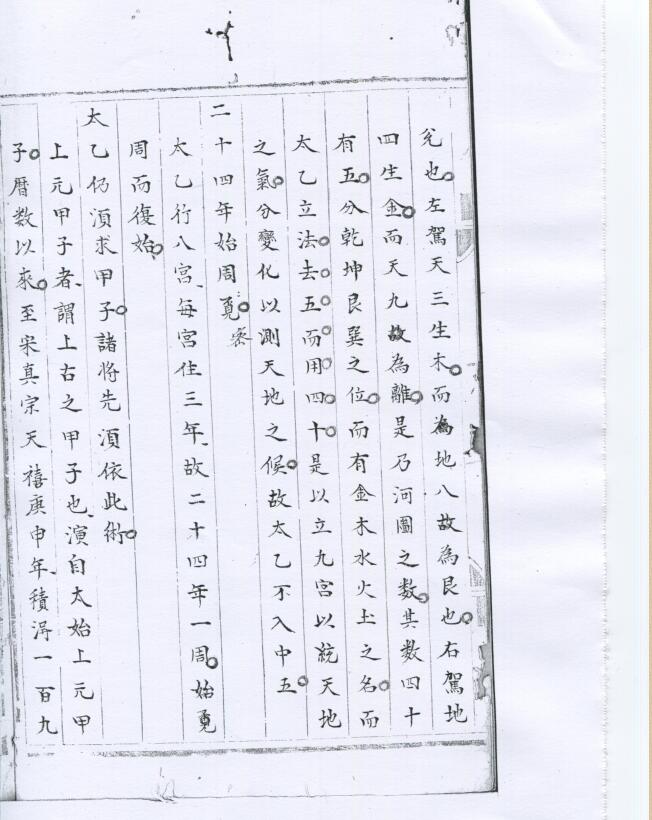 兊也左駕天三生木而為地八故為艮也右駕地
四生金而天九故為離是乃河圖之數其數四十
有五分乾坤艮巽之位而有金木水火土之名而
太乙立法去五而用四十是以立九宮以統天地
之氣分變化以測天地之候故太乙不入中五
二十四年始周
太乙行八宮每宮住三年故二十四年一周始
周而復始
太乙仍湏求甲子諸將先湏依此術
上元甲子者謂上古之甲子也演自太始上元甲
子曆數以來至宋真宗天禧庚申年積得一百九